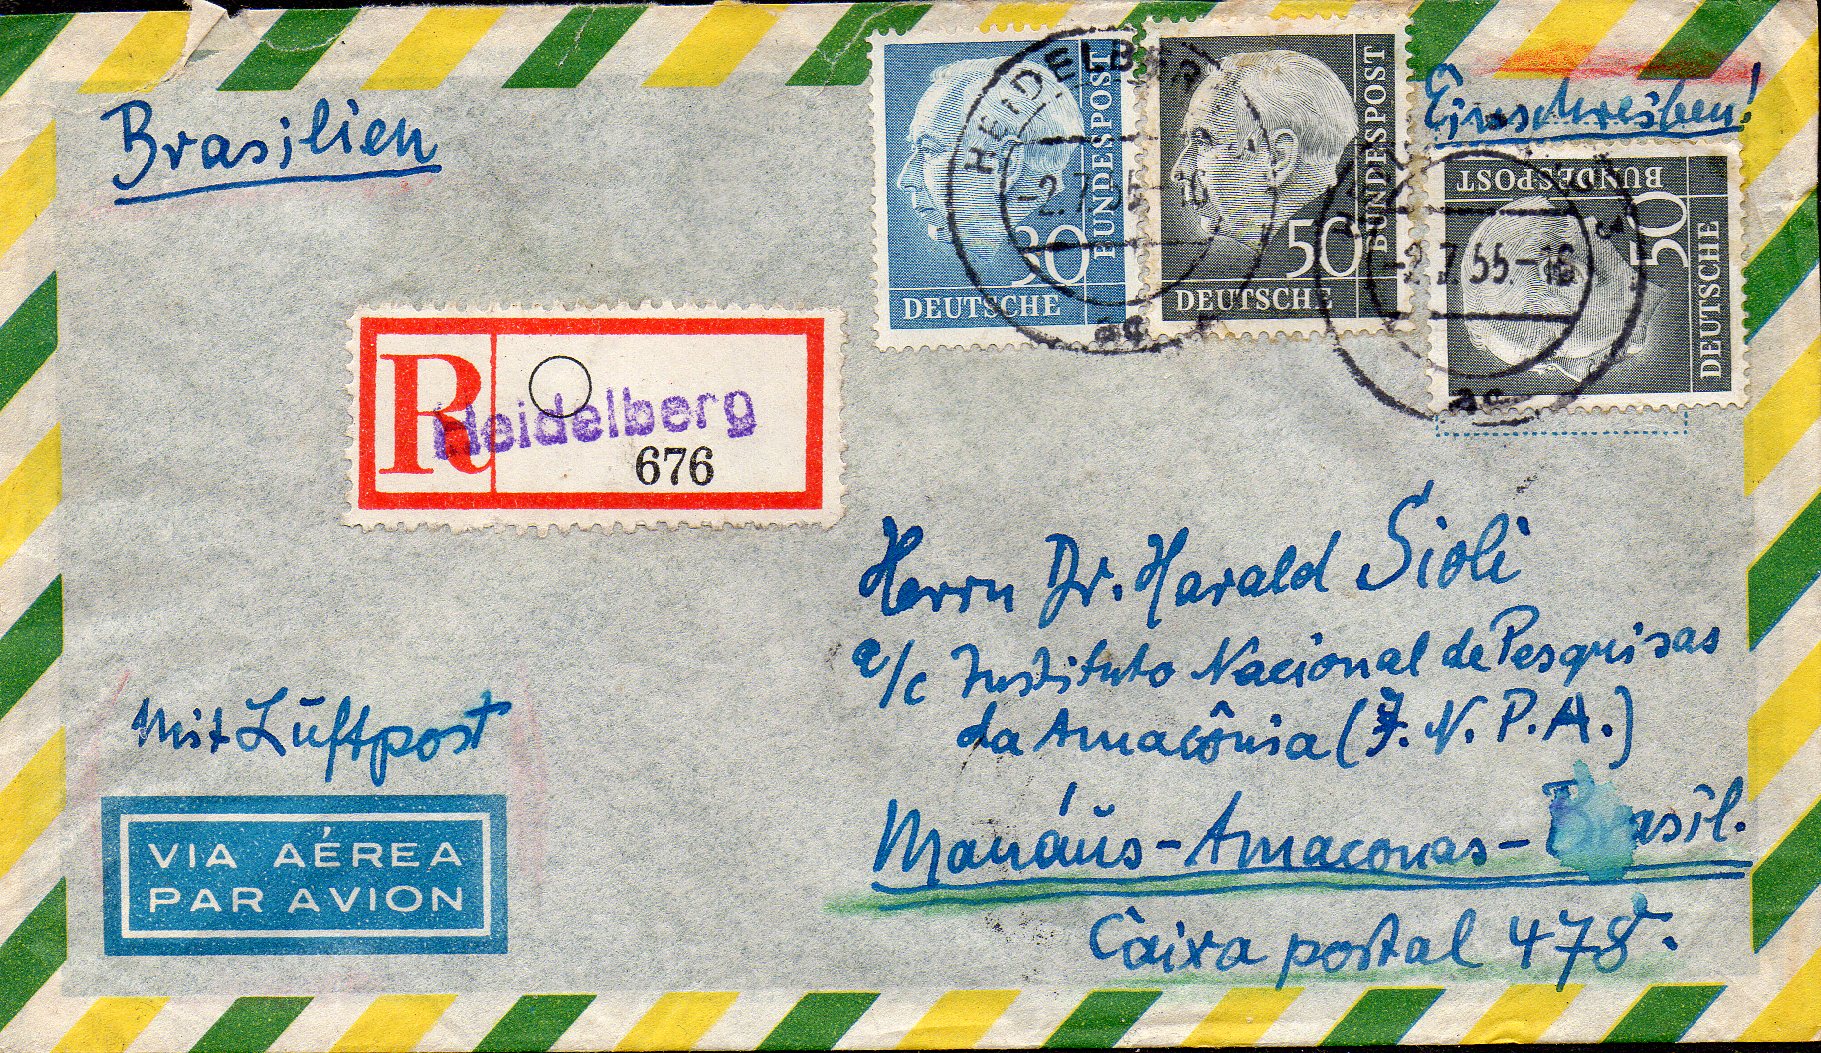 Brasilien
Einschreiben!
30
DEUTSCHE
BUNDESPOST
50
DEUTSCHE
BUNDESPOST
50
DEUTSCHE
BUNDESPOST
HEIDELBERG
-2.7.55-16
ag
-2.7.55-16
ag
R
Heidelberg
676
Herrn Dr. Harald Sioli
a/c Instituto Nacional de Pesquisas
da Amacônia (I.N.P.A.)
Manáus-Amaconas-Brasil.
Caixa postal 478.
Mit Luftpost
VIA AÉREA
PAR AVION